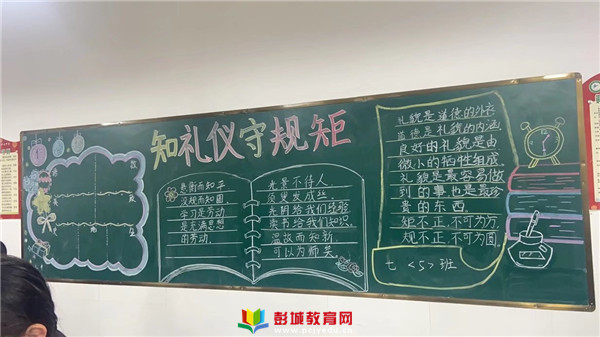 知礼仪守规矩
悬衡而知平
设规而知圆
学习是劳动
是充满思想
的劳动
光景不待人
须叟发成丝
光阴给我们经验
读书给我们知识
温故而知新
可以为师矣
礼貌是道德的外衣
道德是礼貌的内涵
良好的礼貌是由
微小的牺牲组成
礼貌是最容易做
到的事也是最珍
贵的东西
矩不正,不可为方
规不正,不可为圆
七<5>班
彭城教育网